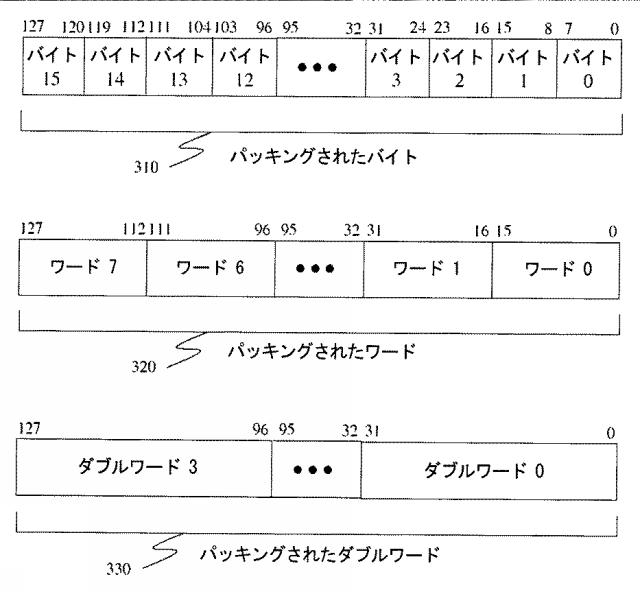 127 120 119 112 111 104 103 96 95 32 31 24 23 16 15 8 7 0
バイト バイト バイト バイト バイト バイト バイト バイト
15 14 13 12 ••• 3 2 1 0
310 パッキングされたバイト
127 112 111 96 95 32 31 16 15 0
ワード 7 ワード 6 ••• ワード 1 ワード 0
320 パッキングされたワード
127 96 95 32 31 0
ダブルワード 3 ••• ダブルワード 0
330 パッキングされたダブルワード